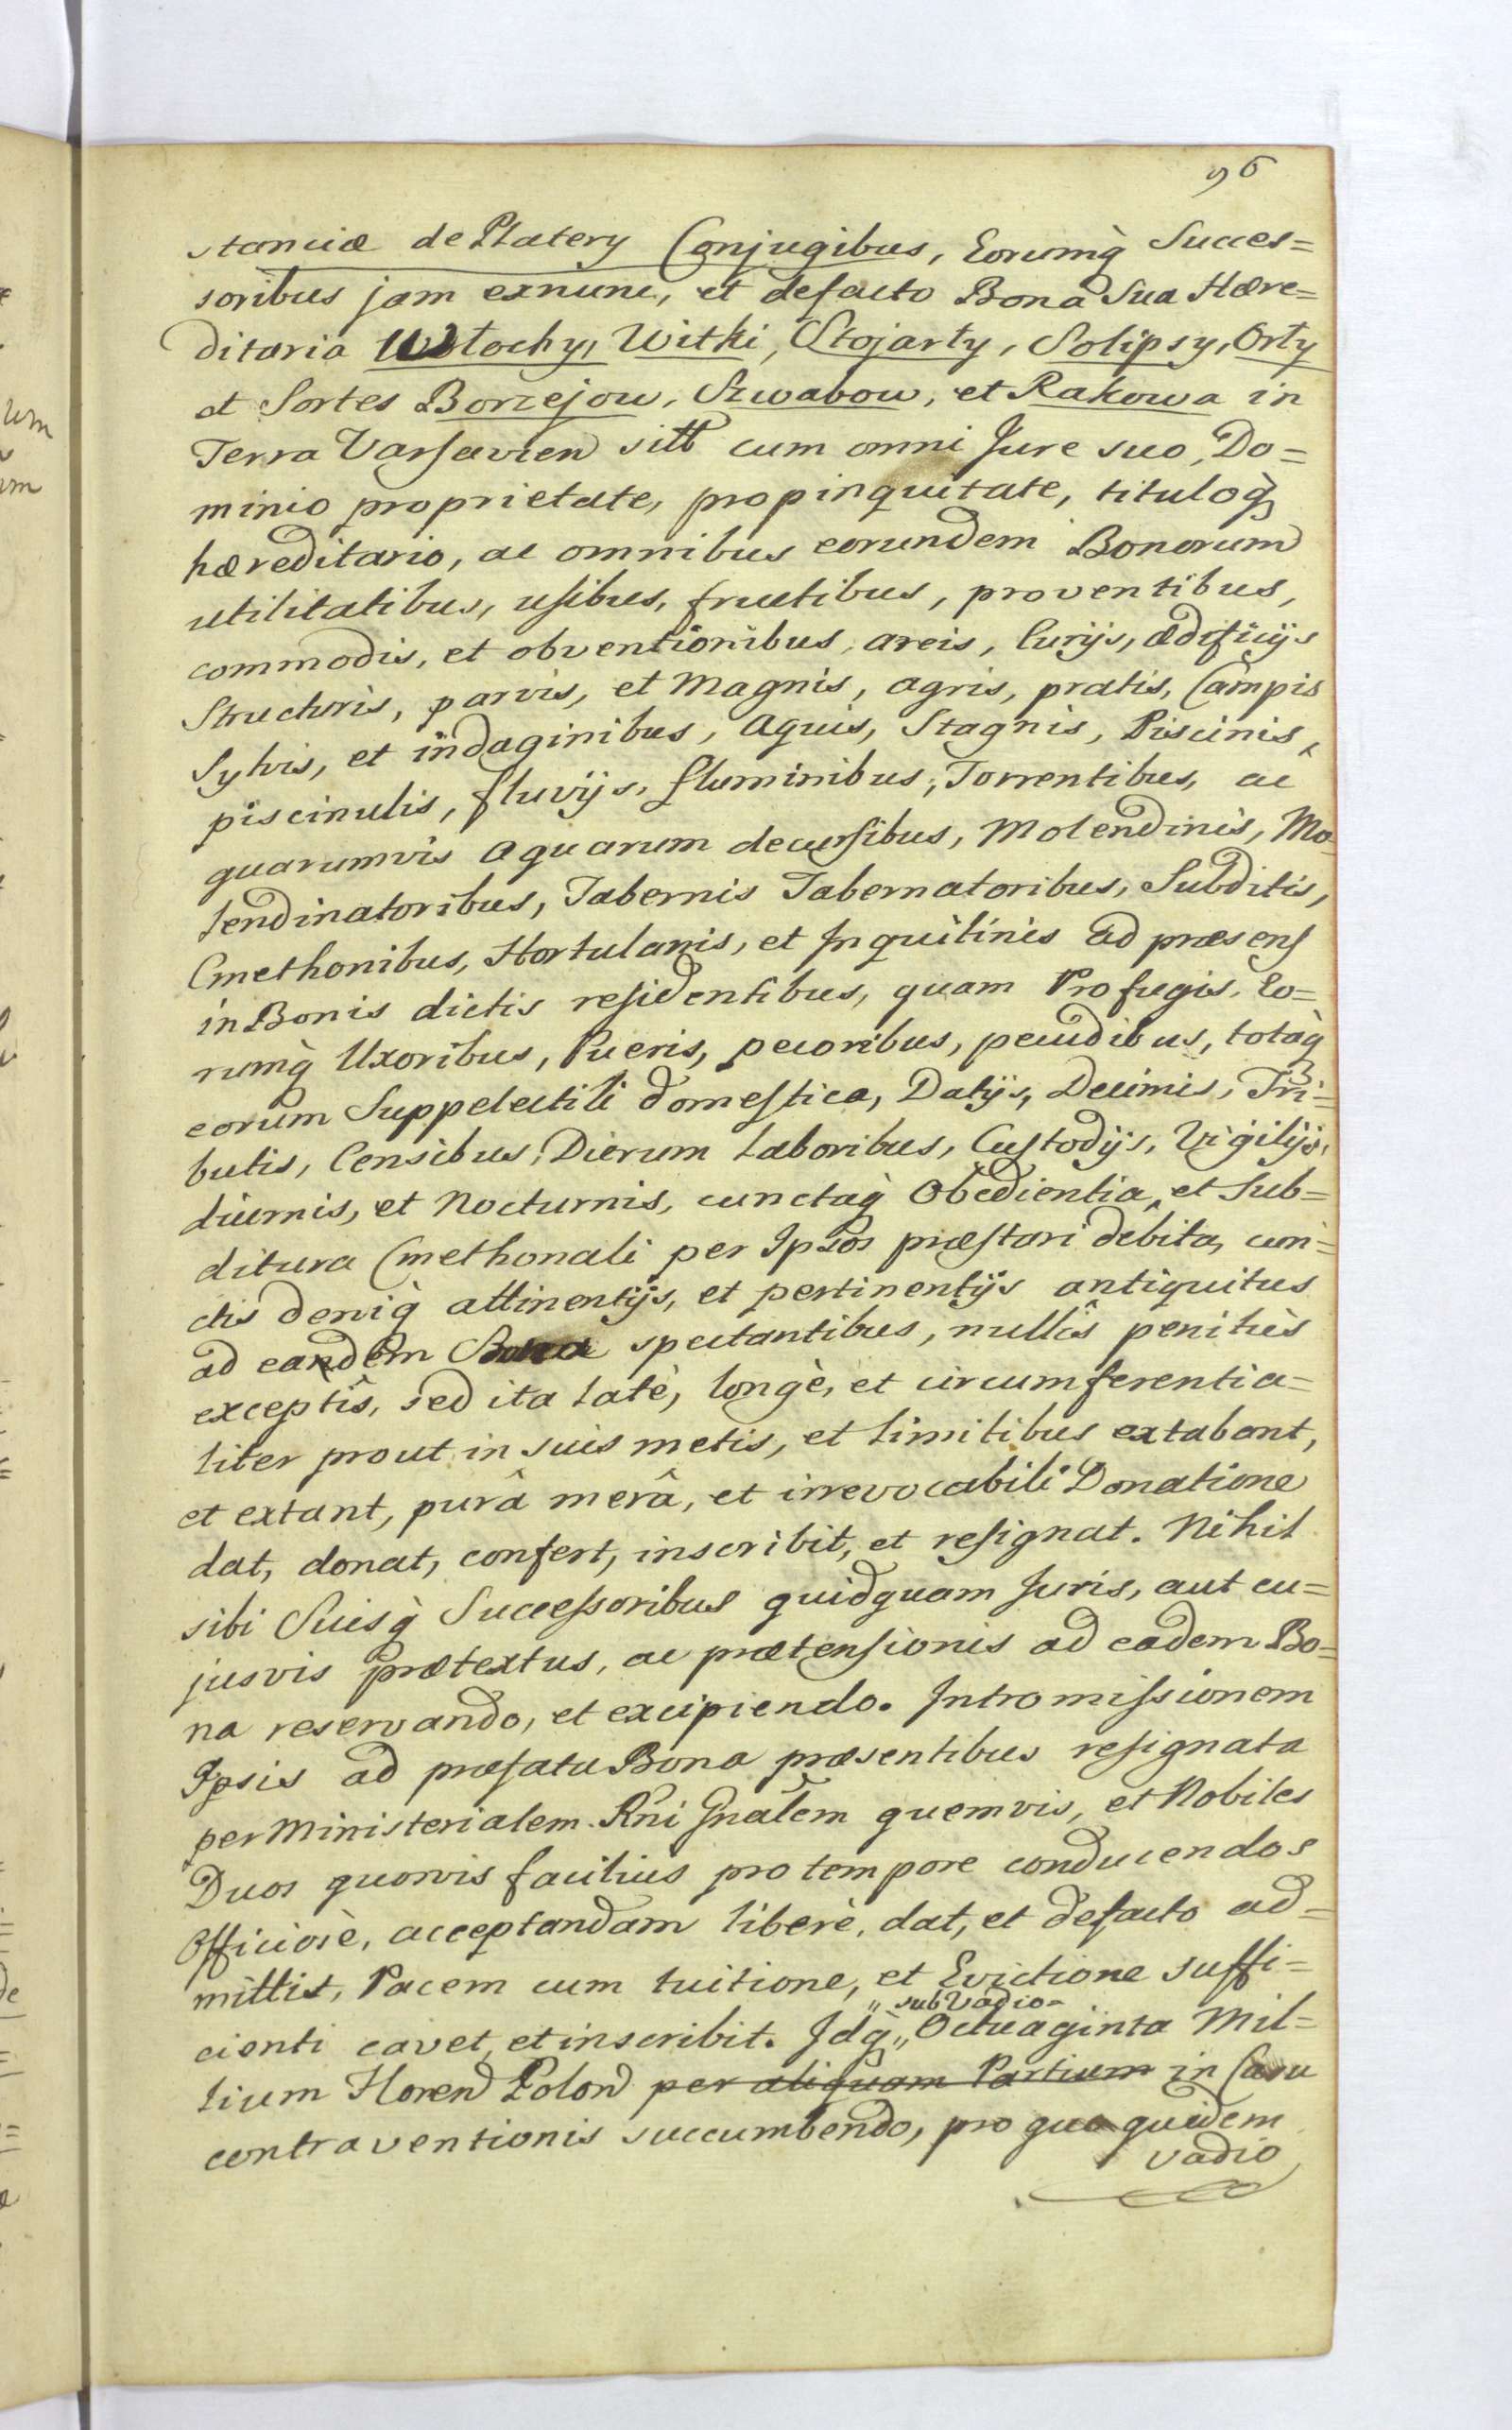 96
stanciæ de Platery Conjugibus, Eorumq̀ Succes=
soribus jam exnunc, et defacto Bona Sua Hære=
ditaria Włochy, Witki, Stojarty, Solipsy, Orły
et Sortes Borzejow, Szwabow, et Rakowa in
Terra Varsavien sitt cum omni Jure suo, Do=
minio proprietate, propinquitate, tituloq̀
hæreditario, ac omnibus eorundem Bonorum
utilitatibus, usibus, fructibus, proventibus,
commodis, et obventionibus, areis, Curijs, ædificijs
Structuris, parvis, et Magnis, agris, pratis, Campis
Sylvis, et indaginibus, Aquis, Stagnis, Piscinis,
piscinulis, fluvijs, fluminibus, Torrentibus, ac
quarumvis Aquarum decursibus, Molendinis, Mo=
lendinatoribus, Tabernis Tabernatoribus, Subditis,
Cmethonibus, Hortulanis, et Inquilinis ad præsens
in Bonis dictis residentibus, quam Profugis, Eo=
rumq̀ Uxoribus, Pueris, pecoribus, pecudibus, totaq̀
eorum Suppelectili domestica, Datijs, Decimis, Tri=
butis, Censibus, Dierum Laboribus, Custodijs, Vigilijs,
diurnis, et Nocturnis, cunctaq̀ Obedientia, et Sub=
ditura Cmethonali per Ipsos præstari debita, cun=
ctis deniq̀ attinentijs, et pertinentijs antiquitus
ad eandem Bona spectantibus, nullis penitùs
exceptis, sed ita latè, longè, et circumferentia=
liter prout in suis metis, et limitibus extabant,
et extant, purâ merâ, et irrevocabili Donatione
dat, donat, confert, inscribit, et resignat. Nihil
sibi Suisq̀ Successoribus quidquam Juris, aut cu=
jusvis prætextus, ac prætensionis ad eadem Bo=
na reservando, et excipiendo. Intromissionem
Ipsis ad præfata Bona præsentibus resignata
per Ministerialem Rñi Gnãlem quemvis, et Nobiles
Duos quosvis facilius pro tempore conducendos
Officiosè, acceptandam liberè, dat, et defacto ad=
mittit, Pacem cum tuitione, et Evictione suffi=
cienti cavet, et inscribit. Idq̀ „ sub Vadio „ Octuaginta Mil=
lium Floren Polon per aliquam Partium in Casu
contraventionis succumbendo, pro quo quidem
vadio